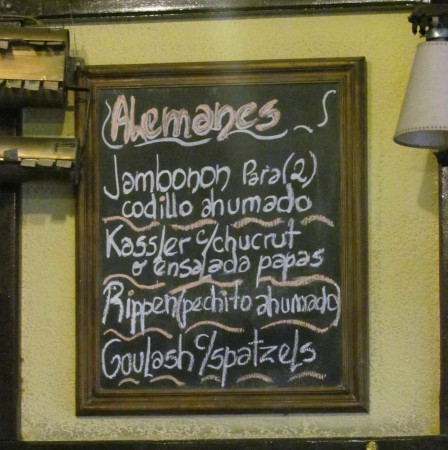 Alemanes
Jambonon para (2)
codillo ahumado
Kassler c/chucrut
o ensalada papas
Rippen (pechito ahumado)
Goulash c/spatzels